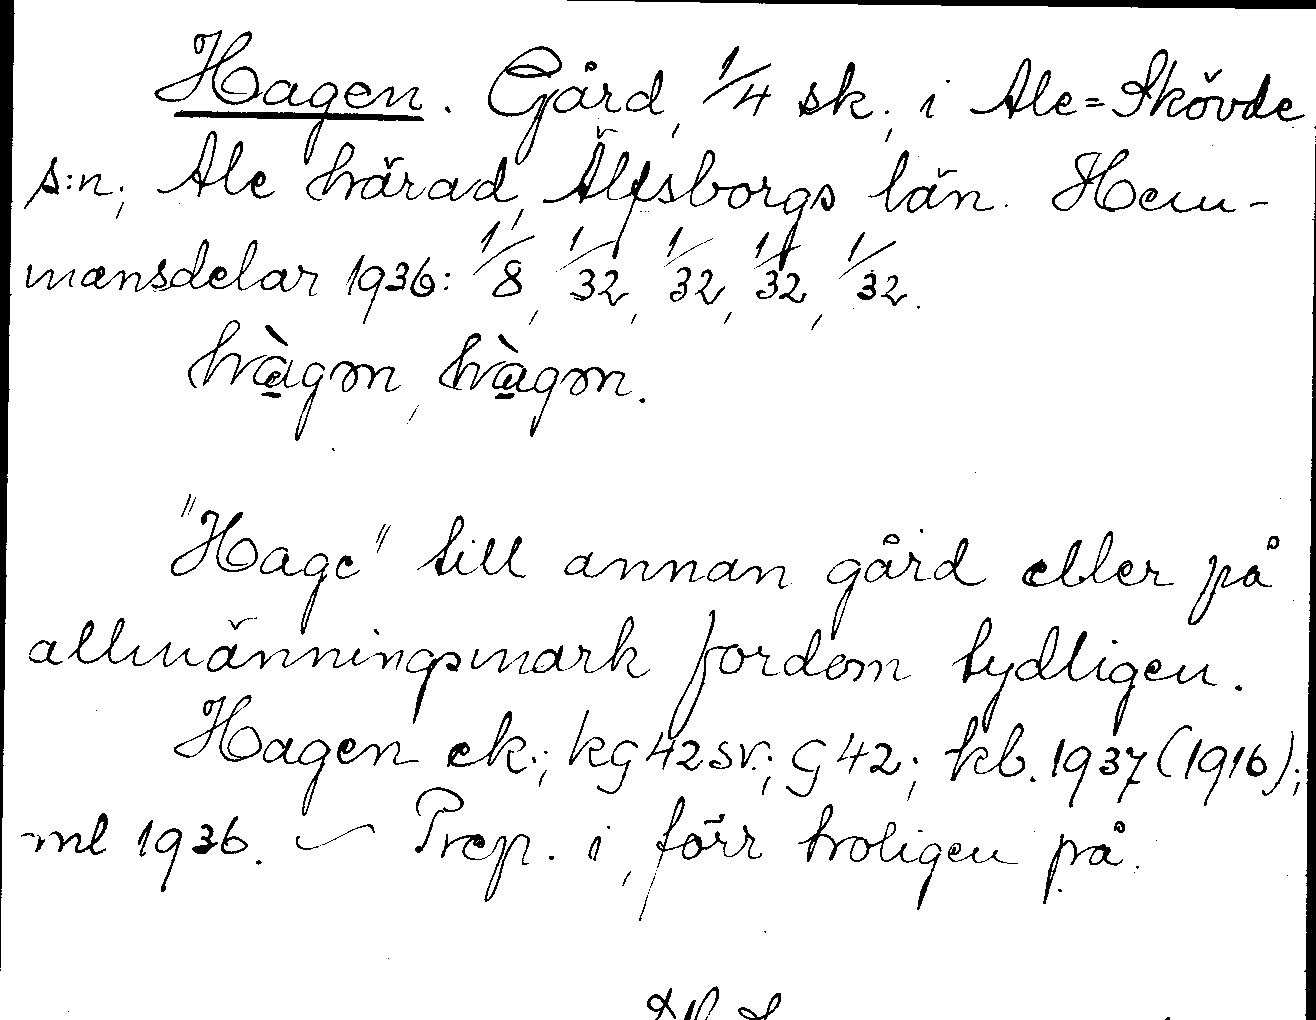 Hagen. Gård, 1/4 sk., i Ale=Skövde
s:n, Ale härad, Älfsborgs län. Hem-
mansdelar 1936: 1/8, 1/32, 1/32, 1/32, 1/32.
"Hage" till annan gård eller på
allmänningsmark fordom tydligen.
Hagen ek.; kg 42 sv.; G 42; kb. 1937 (1916);
ml 1936. — Prep. i, förr troligen på.